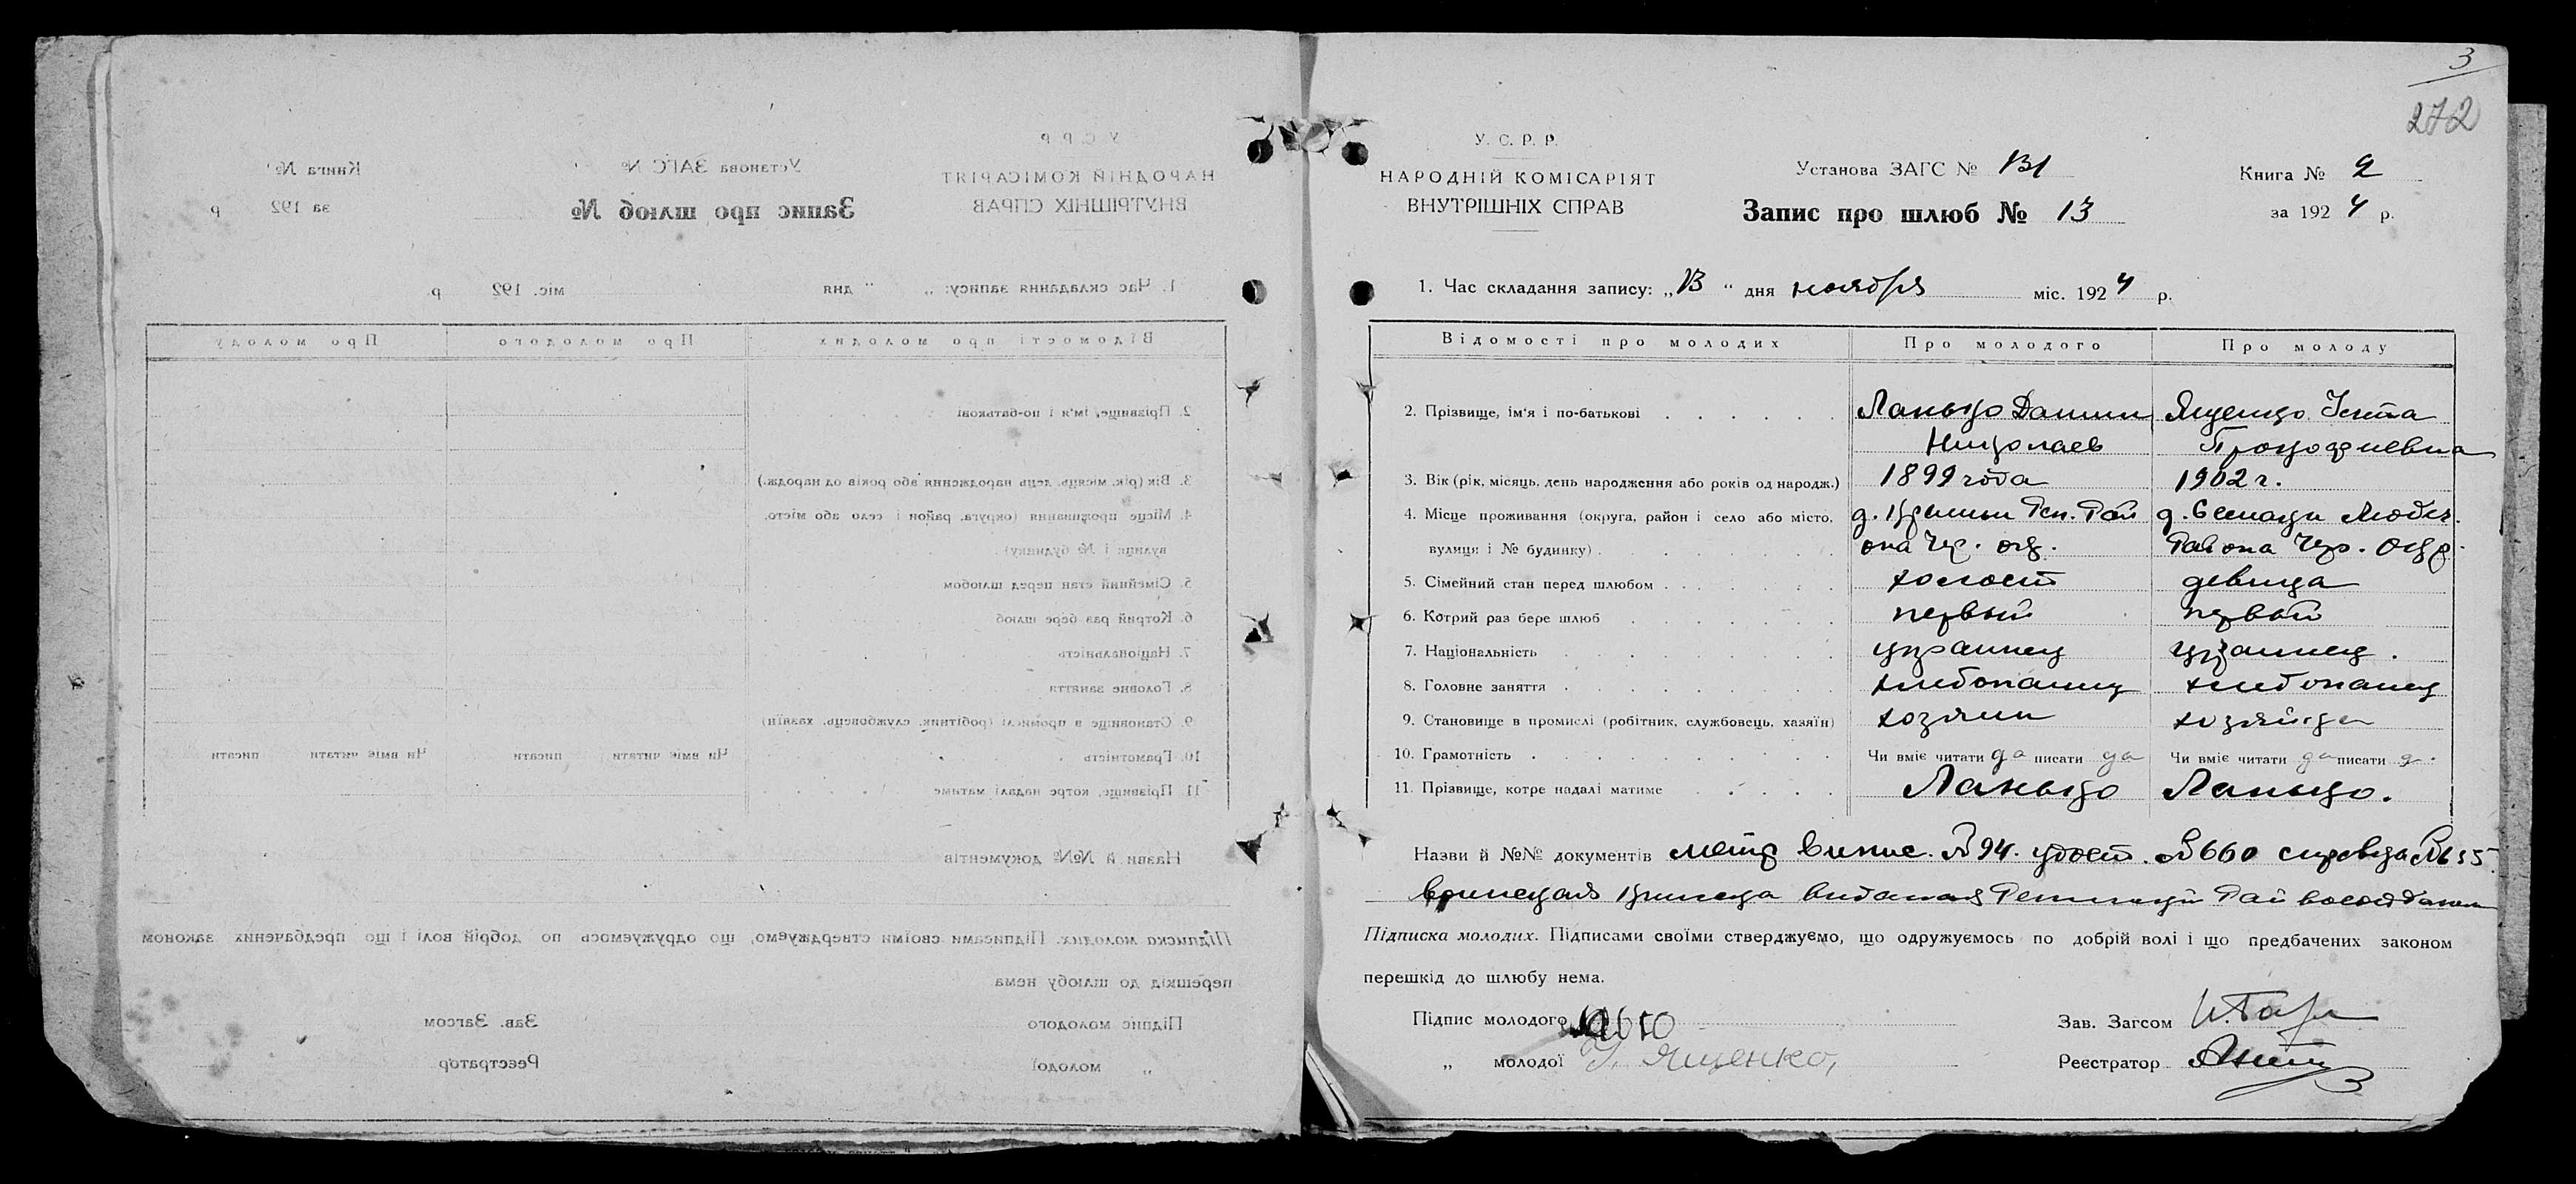 3
272
У. С. Р. Р.
НАРОДНІЙ КОМІСАРІЯТ
ВНУТРІШНІХ СПРАВ
Установа ЗАГС №
Запис про шлюб № 13
Книга № 2
за 1924 р.
1. Час складання запису: „ “ дня ноября міс. 1924 р.
Відомості про молодих Про молодого Про молоду
2. Прізвище, ім'я і по-батькові Ященко
Николаев Прокофиевна
3. Вік (рік, місяць, день народження або років од народж.) 1899 года 1902 г.
4. Місце проживання (округа, район і село або місто, д. Реп. Рай д. Семаки Любеч.
вулиця і № будинку) она Чер. окр. Района Чер. Окр.
5. Сімейний стан перед шлюбом холост девица
6. Котрий раз бере шлюб первый первый
7. Національність украинец украинец.
8. Головне заняття хлебопашец хлебопашец
9. Становище в промислі (робітник, службовець, хазяїн) хозяин хозяйка
10. Грамотність Чи вміє читати да писати да Чи вміє читати да писати да
11. Прізвище, котре надалі матиме Ланько Ланько.
Назви й №№ документів метр випис. №94. удост. №660 справка №655
Підписка молодих. Підписами своїми стверджуємо, що одружуємось по добрій волі і що предбачених законом
перешкід до шлюбу нема.
Підпис молодого
„ молодої У. Ященко,
Зав. Загсом
Реєстратор